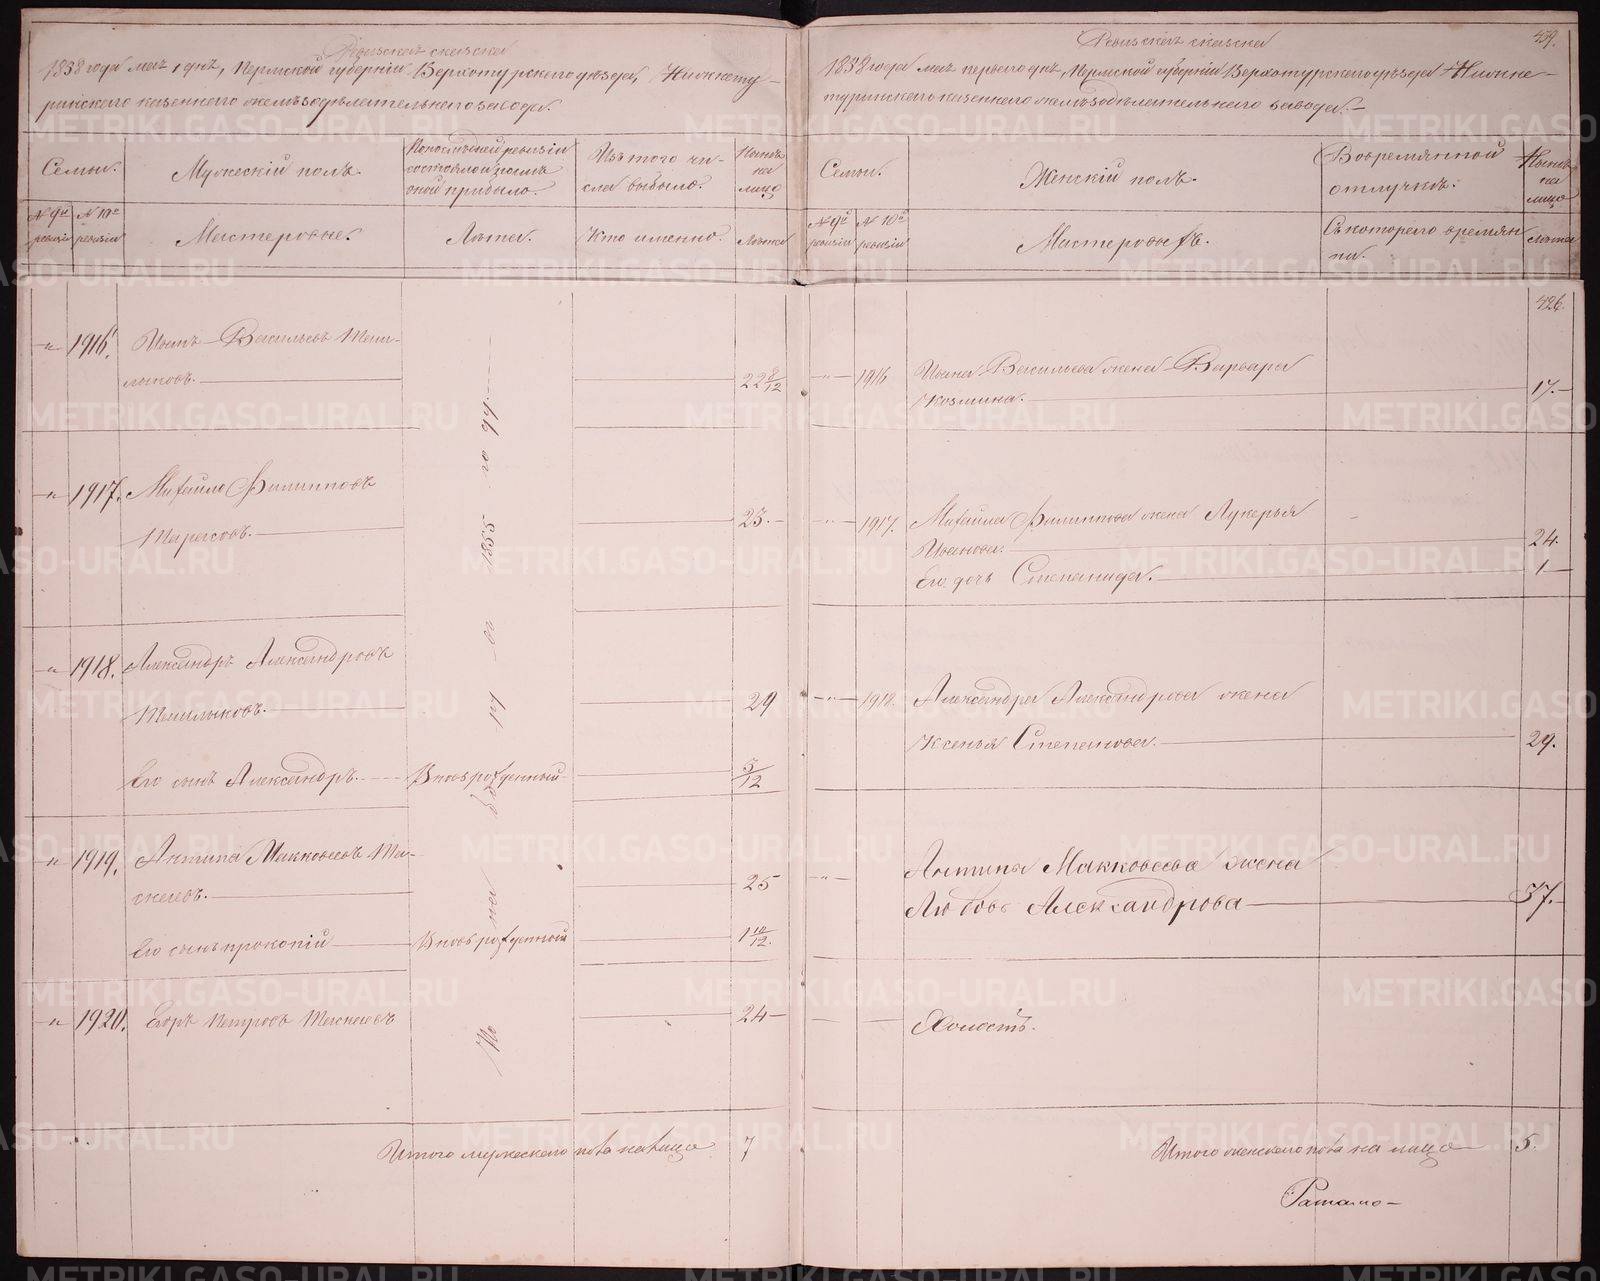 Ревизская сказка
1858 года мая 1 дня, Пермской губернии Верхотурского уезда, Нижнету-
ринского казенного железоделательного завода.
Семьи.
Мужеский полъ.
По последней ревизіи состояло и после оной прибыло.
Изъ того чи-
сла выбыло.
Ныне на лицо
№ 9й ревизіи
№ 10й ревизіи
Мастеровые.
Лета.
Кто именно.
Лета
"
1916.
Иванъ Васильевъ
22 8/12
"
1917.
Михайло Филипповъ
Тарасовъ.
23.
"
1918.
Александръ Александровъ
29
Его сынъ Александръ.
Вновьрожденный
5/12
"
1919.
Антипа Маккавеевъ
25
Его сынъ Прокопій
Вновьрожденный
1 10/12.
"
1920.
Егоръ Петровъ
24
1855 году
Итого мужескаго пола на лицо
7
Ревизская сказка
459.
1858 года мая перваго дня, Пермской губерніи Верхотурского уезда Нижне-
туринского казенного железоделательнаго завода.
Семьи.
Женскій полъ.
Во временной
отлучке.
Ныне на лицо
№ 9й ревизіи
№ 10й ревизіи
Мастеровыхъ.
Съ которого времян
ни.
Лета
426.
"
1916
Ивана Васильева жена Варвара
Козмина.
17.
"
1917.
Михайла Филиппова жена Лукерья
Иванова.
24.
Его дочь Степанида.
1
"
1918.
Александра Александрова жена
Ксенья Степанова.
29.
"
Антипы Маккавеева жена
Любовь Александрова
37.
Холостъ.
Итого женскаго пола на лицо
5.
METRIKI.GASO-URAL.RU